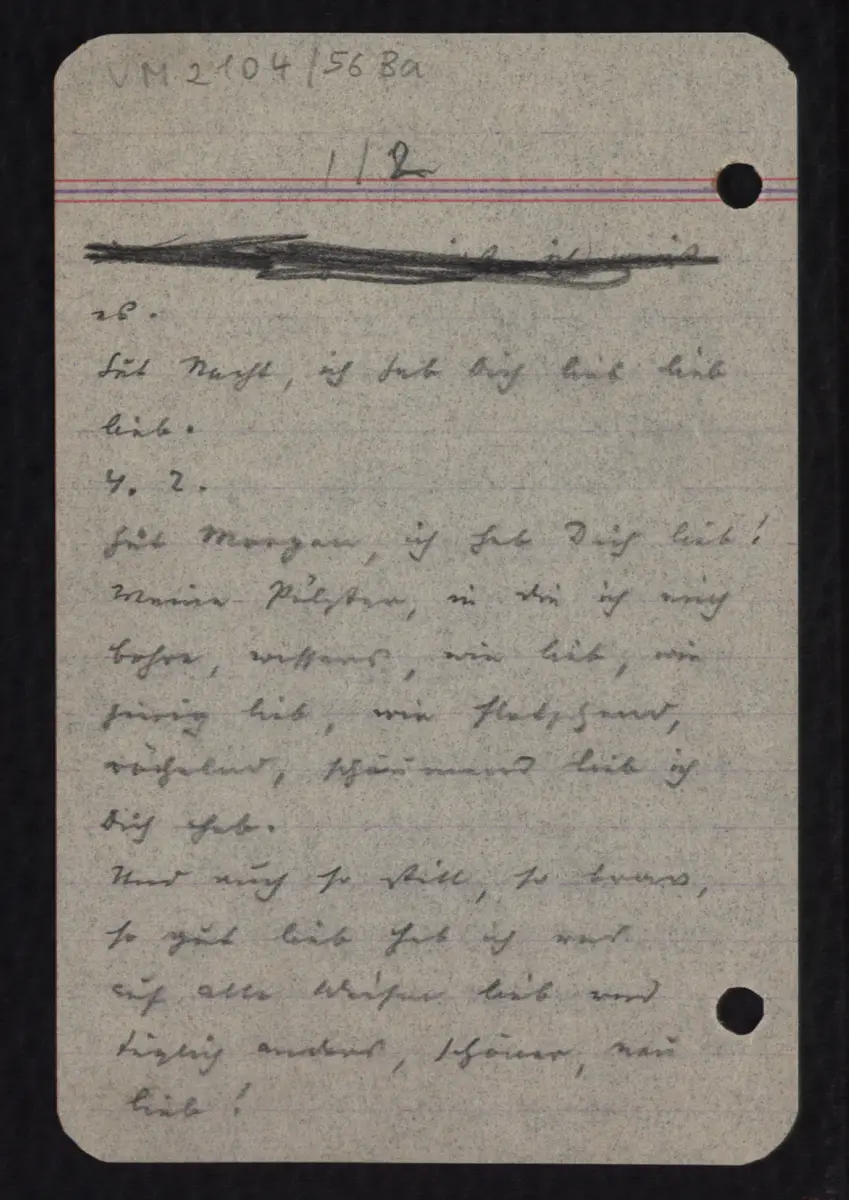 VM 2104/56 Ba
112
es.
Gut Nacht, ich hab Dich lieb lieb
lieb.
4. 2.
Gut Morgen, ich hab Dich lieb!
Meine Pölster, in die ich mich
bohre, wissens, wie lieb, wie
lieb, wie fletschend,
röchelnd, schäumend lieb ich
Dich hab.
Und auch so still, so brav,
so gut lieb hab ich und
auf alle Weisen lieb und
täglich anders, schöner, neu
lieb!